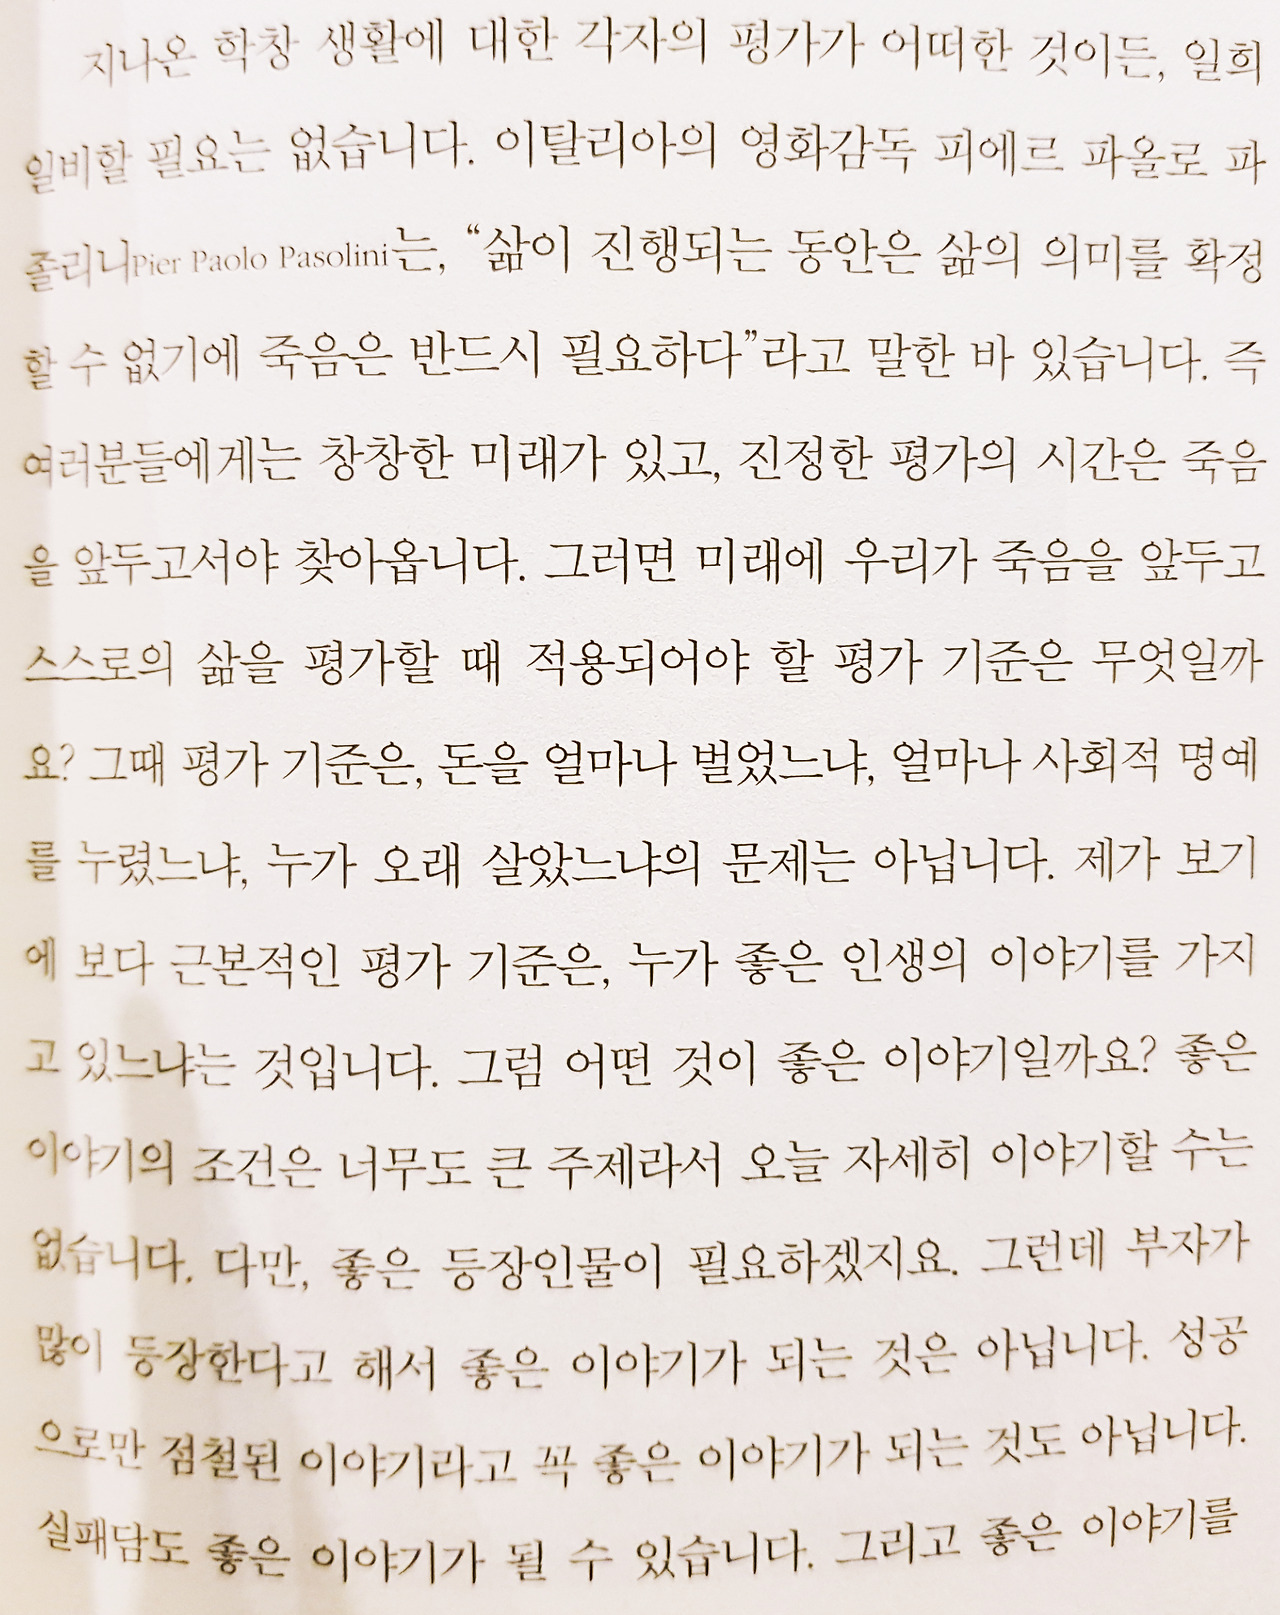 지나온 학창 생활에 대한 각자의 평가가 어떠한 것이든, 일희
일비할 필요는 없습니다. 이탈리아의 영화감독 피에르 파올로 파
졸리니Pier Paolo Pasolini는, “삶이 진행되는 동안은 삶의 의미를 확정
할 수 없기에 죽음은 반드시 필요하다”라고 말한 바 있습니다. 즉
여러분들에게는 창창한 미래가 있고, 진정한 평가의 시간은 죽음
을 앞두고서야 찾아옵니다. 그러면 미래에 우리가 죽음을 앞두고
스스로의 삶을 평가할 때 적용되어야 할 평가 기준은 무엇일까
요? 그때 평가 기준은, 돈을 얼마나 벌었느냐, 얼마나 사회적 명예
를 누렸느냐, 누가 오래 살았느냐의 문제는 아닙니다. 제가 보기
에 보다 근본적인 평가 기준은, 누가 좋은 인생의 이야기를 가지
고 있느냐는 것입니다. 그럼 어떤 것이 좋은 이야기일까요? 좋은
이야기의 조건은 너무도 큰 주제라서 오늘 자세히 이야기할 수는
없습니다. 다만, 좋은 등장인물이 필요하겠지요. 그런데 부자가
많이 등장한다고 해서 좋은 이야기가 되는 것은 아닙니다. 성공
으로만 점철된 이야기라고 꼭 좋은 이야기가 되는 것도 아닙니다.
실패담도 좋은 이야기가 될 수 있습니다. 그리고 좋은 이야기를